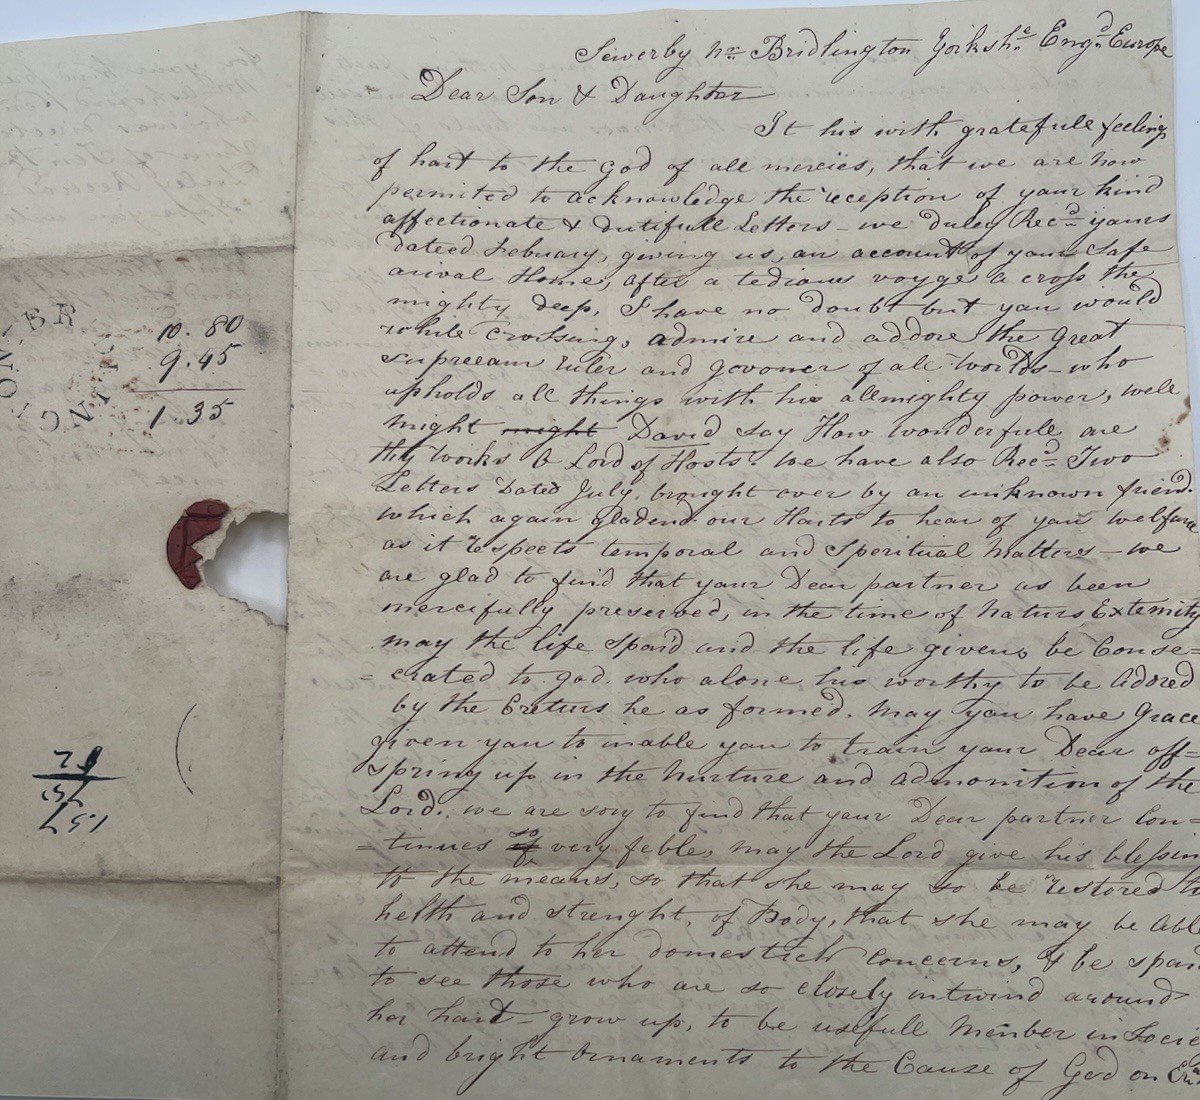 Sewerby Nr. Bridlington Yorkshe. Engd. Europe
Dear Son & Daughter
It his with gratefule feeling
of hart to the God of all mercies, that we are now
permited to acknowledge the reception of your kind
affectionate & dutifull Letters - we duley Recd. yours
dateed Febuary, giving us, an account of your safe
arival Home, after a tedious voyge a cross the
mighty deep, I have no doubt but you would
while Crossing, admire and addore the great
Supreeam ruler and govoner of all worlds - who
upholds all things with his allmighty power, well
might might David say How wonderfull are
thy works O Lord of Hosts. We have also Recd. Two
Letters Dated July, brought over by an unknown friend.
which again gladend our Harts to hear of you welfare
as it respects temporal and Speritual Matters - we
are glad to find that your Dear partner as been
mercifully preserved, in the time of Naturs Extemity
may the life spard and the life given, be Conse=
=crated to God. who alone his worthy to be Adored
by the Creturs he as formed. May you have Grace
given you to inable you to train your Dear off=
spring up in the Nurture and admonition of the
Lord. we are sory to find that your Dear partner Con=
=tinues so very feble, may the Lord give his blessin
to the means, so that she may so be restored to
helth and strenght, of Body, that she may be able
to attend to her domestick Concerns, & be spard
to see those who are so closely intwind around
her hart - grow up, to be usefull Member in Socie
and bright Ornaments to the Cause of God on
10.80
9.45
1.35